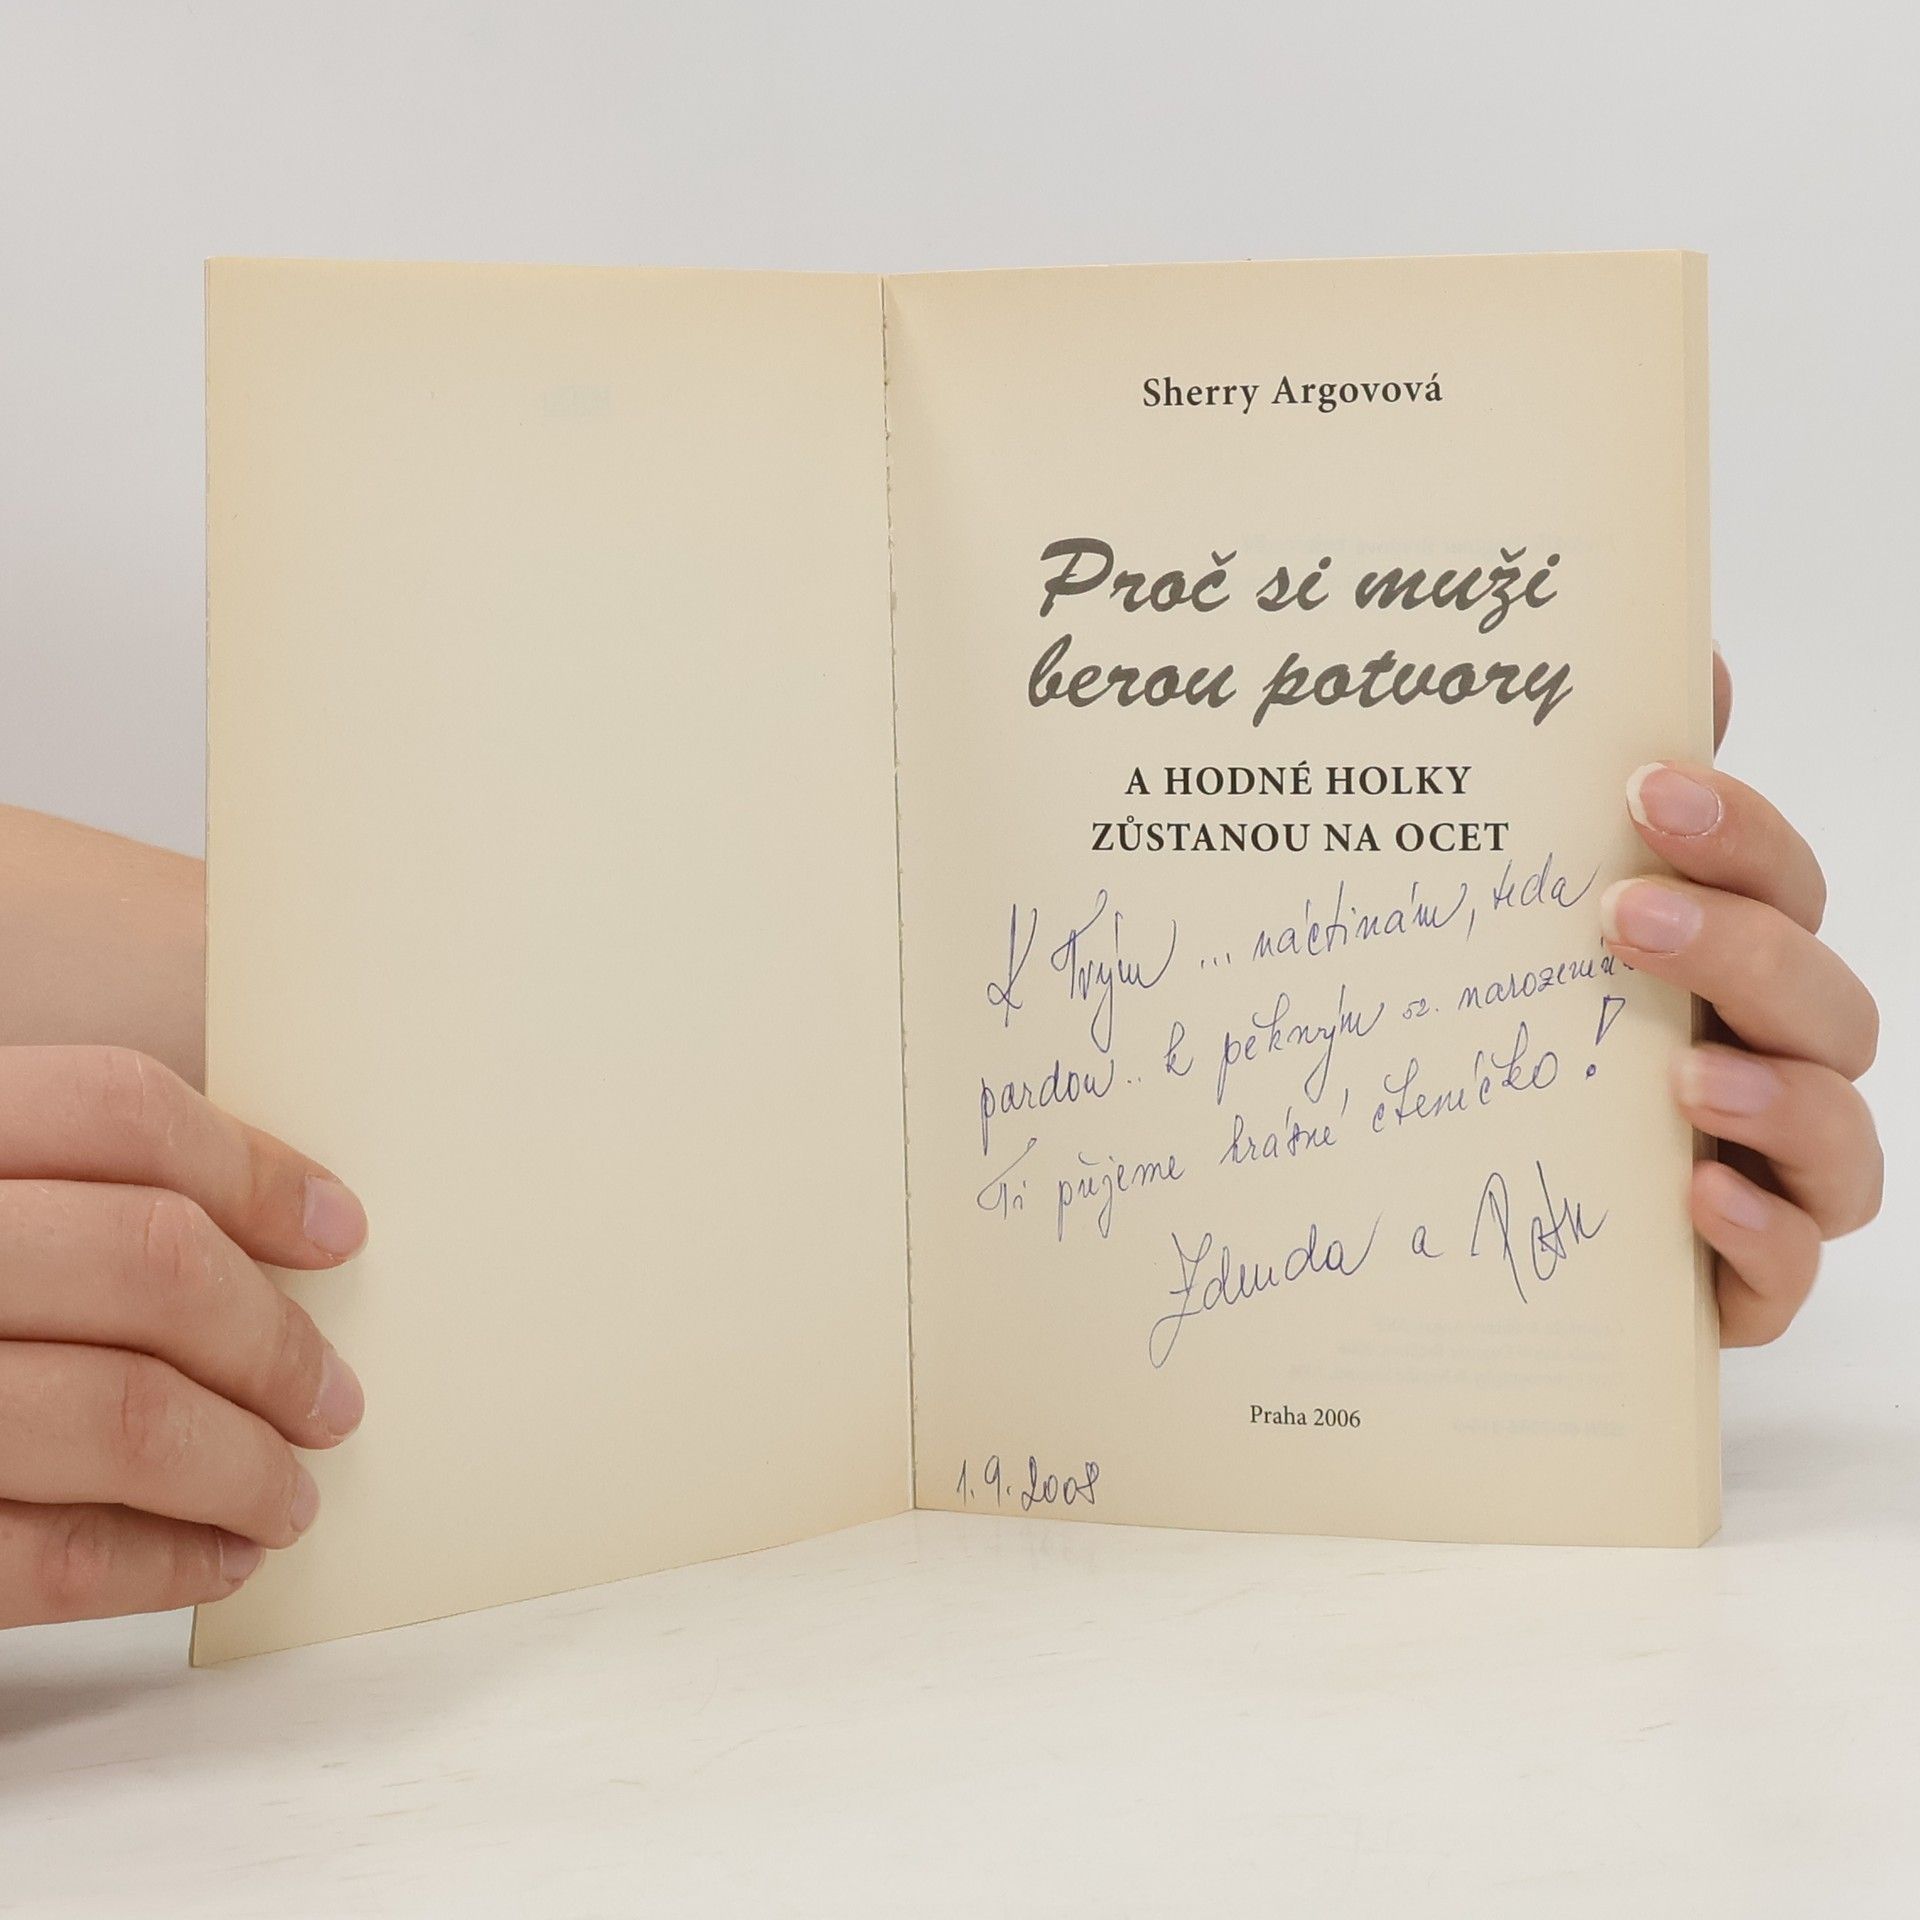 Sherry Argovová
Proč si muži
berou potvory
A HODNÉ HOLKY
ZŮSTANOU NA OCET
K Tvým ... náctinám, teda
pardon.. k pěkným 52. narozeninám
Ti přejeme krásné čteníčko!
Zdenda a
Praha 2006
1.9.2008